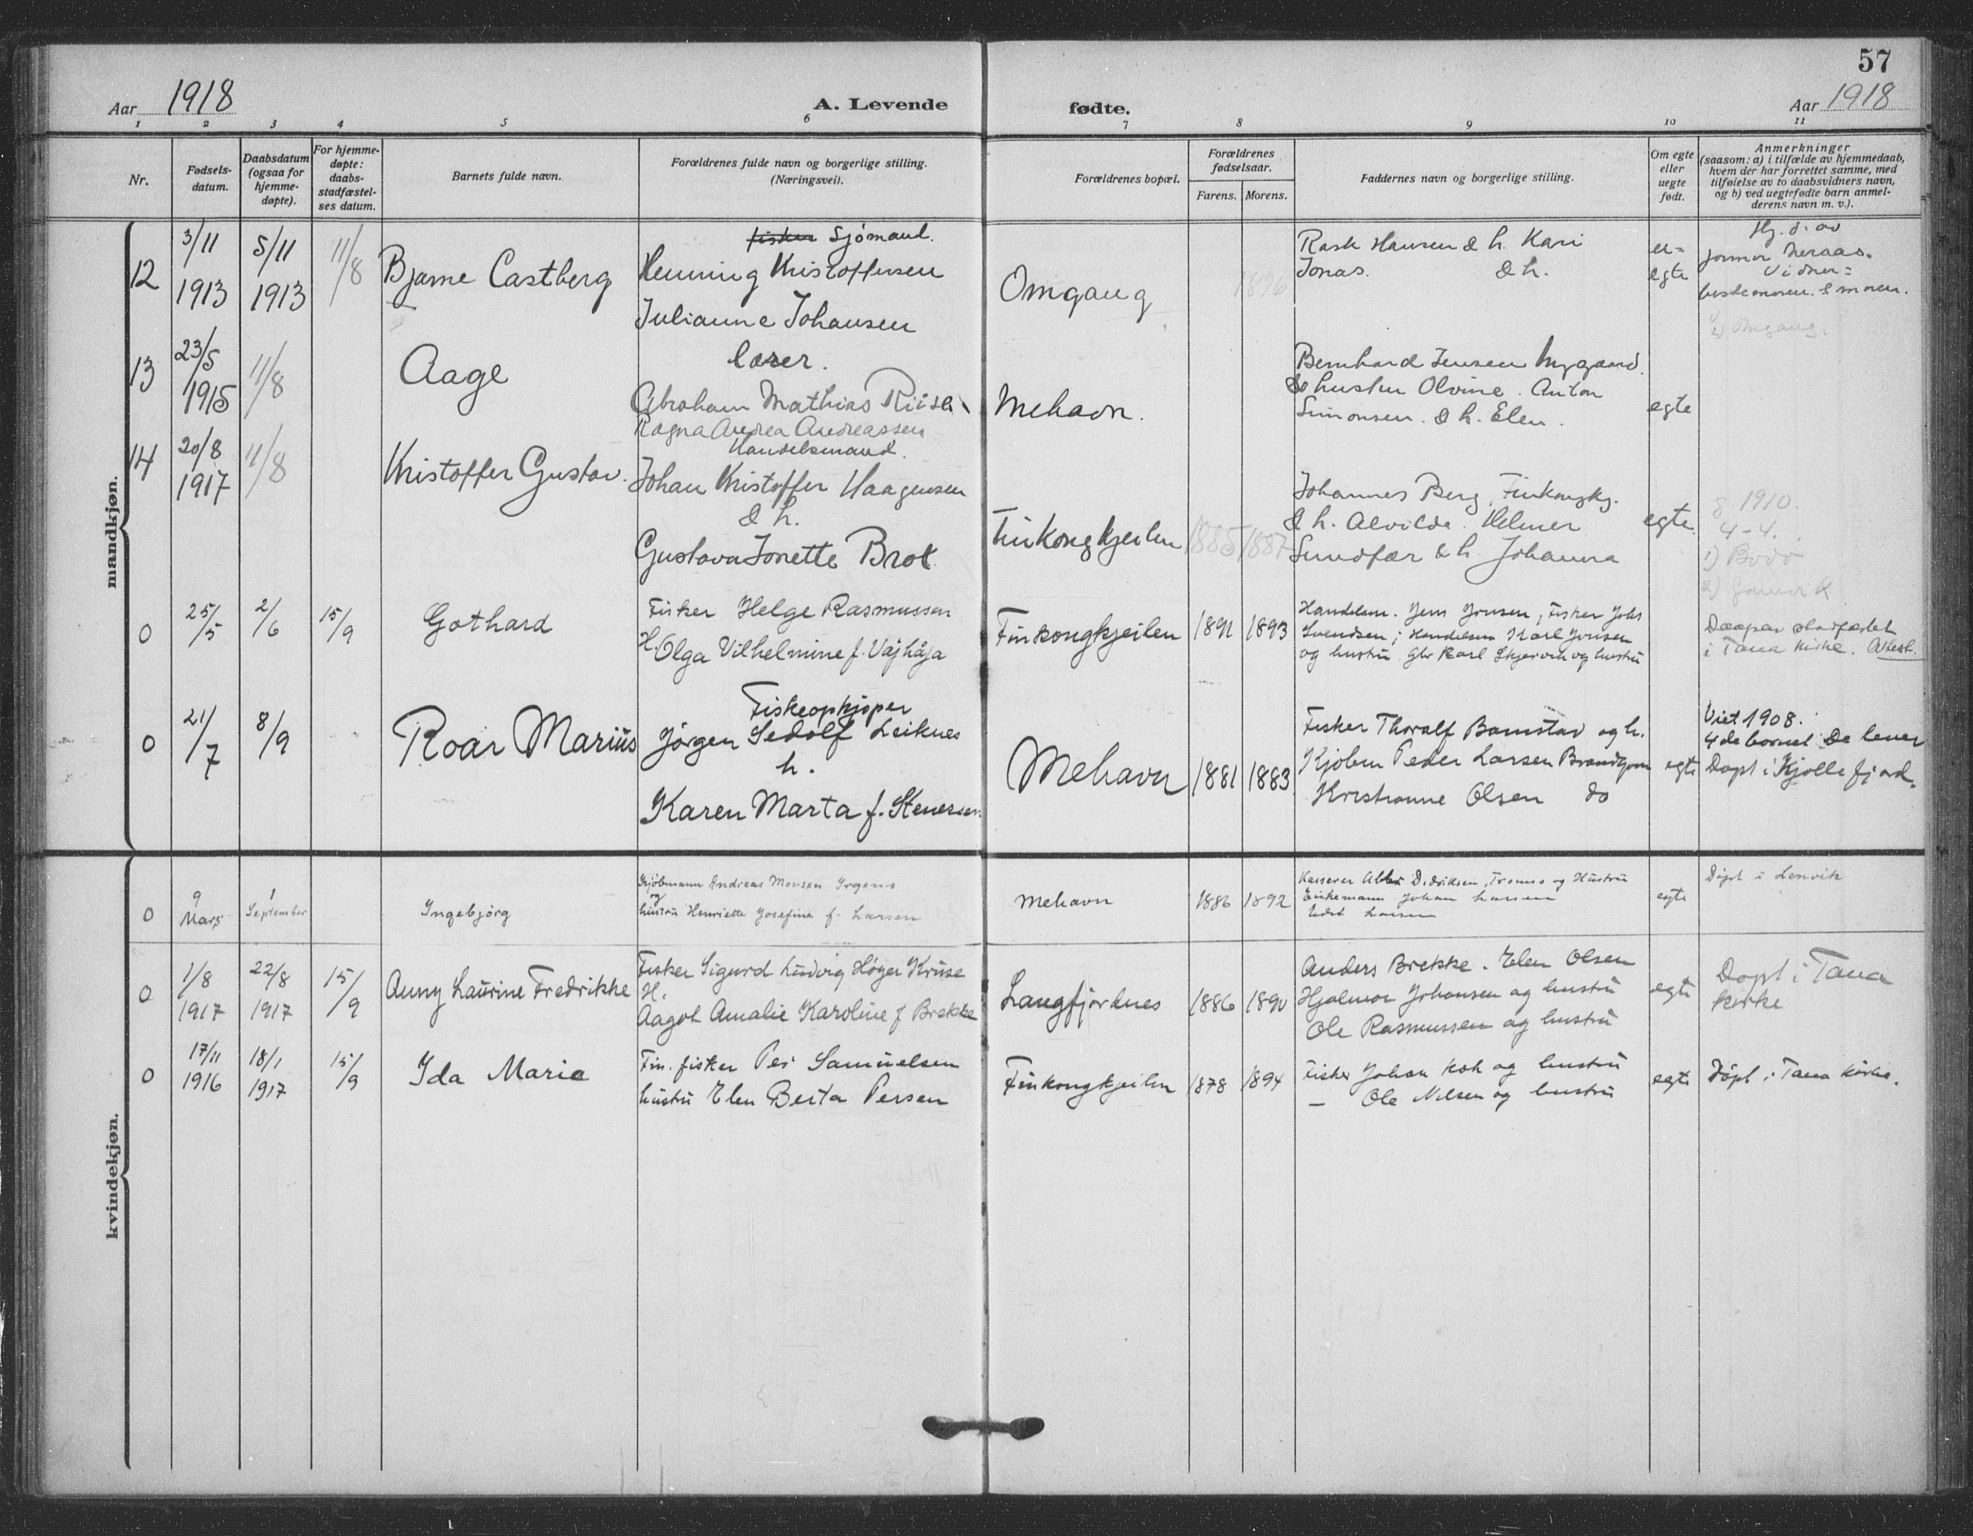 57
Aar 1918
A. Levende fødte.
Aar 1918
1 2 3 4 5 6 7 8 9 10 11
Nr.
Fødsels-
datum.
Daabsdatum
(ogsaa for
hjemme-
døpte).
For hjemme-
døpte:
daabs-
stadfæstel-
ses datum.
Barnets fulde navn.
Forældrenes fulde navn og borgerlige stilling.
(Næringsvei).
Forældrenes bopæl.
Forældrenes
fødselsaar.
Farens. Morens.
Faddernes navn og borgerlige stilling.
Om egte
eller
uegte
født.
Anmerkninger
(saasom: a) i tilfælde av hjemmedaab,
hvem der har forrettet samme, med
tilføielse av to daabsvidners navn,
og b) ved uegtefødte barn anmel-
derens navn m. v.).
mandkjøn.
12
3/11
1913
5/11
1913
11/8
Bjarne Castberg
fisker Sjömand.
Henning Kristoffersen
Julianne Johansen
Omgang
1896
Rask Hansen & h. Kari
Jonas. & h.
u=
egte
Hj. d. av
jormor Neraas.
Vidner=
bestemoren & moren.
2) Omgang.
13
23/5
1915
11/8
Aage
lærer.
Abraham Mathias Riise
Ragna Andrea Andreassen
Mehavn.
Bernhard Jensen Nygaard.
& hustru Olvine. Anton
Simonsen. & h. Elen.
egte
14
20/8
1917
11/8
Kristoffer Gustav.
Handelsmand.
Johan Kristoffer Haagensen
& h.
Gustava Jonette Brok
Finkongkjeilen
1885 1887
Johannes Berg, Finkongkj.
& h. Alvilde. Helmer
Sundfær & h. Johanna
egte.
8 1910.
4-4.
1) Bodö
2) Gamvik
0
25/5
2/6
15/9
Gothard
Fisker Helge Rasmussen
H. Olga Vilhelmine f. Vajhåja
Finkongkjeilen
1891 1893
Handelsm. Jens Jensen, Fisker Johs
Svendsen; Handelsm Karl Jensen
og hustru. Gbr Karl Skjervik og hustru
Daapen stadfæstet
i Tana kirke. Attest.
0
21/7
8/9
Roar Marius
Fiskeopkjøper
Jørgen Sedolf Leiknes
h.
Karen Marta f. Stenersen.
Mehavn
1881 1883
Fisker Thoralf Bamstav og h.
Kjøbm Peder Larsen Brandgom
Kristianne Olsen do
egte
Viet 1908.
4de barnet. De lever
Døpt i Kjøllefjord.
kvindekjøn.
0
9
Mars
1
September
Ingebjørg
Kjøbmann Andreas Monsen Irgens
og
hustru Henriette Josefine f. Larsen
Mehavn
1886 1892
Kasserer Albert Didriksen, Tromsø og Hustru
Enkemann Johan Larsen
Edit Larsen
egte
Døpt i Lenvik
0
1/8
1917
22/8
1917
15/9
Anny Laurine Fredrikke
Fisker Sigurd Ludvig Høyer Kruse
H.
Aagot Amalie Karoline f Brekke
Langfjordnes
1886 1890
Anders Brekke. Elen Olsen
Hjalmar Johansen og hustru
Ole Rasmussen og hustru
egte
Døpt i Tana
kirke
0
17/11
1916
18/1
1917
15/9
Ida Marie
Fin. fisker Per Samuelsen
hustru Elen Berta Persen
Finkongkjeilen
1878 1894
Fisker Johan Koh og hustru
— Ole Nilsen og hustru
egte
Døpt i Tana kirke.